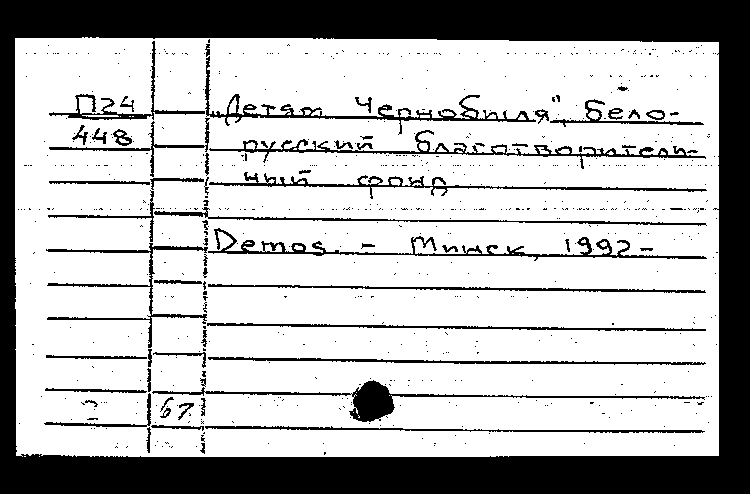 П24 „Детям Чернобыля", Бело-
448 русский благотворитель-
ный фонд
Demos. - Минск, 1992-
67